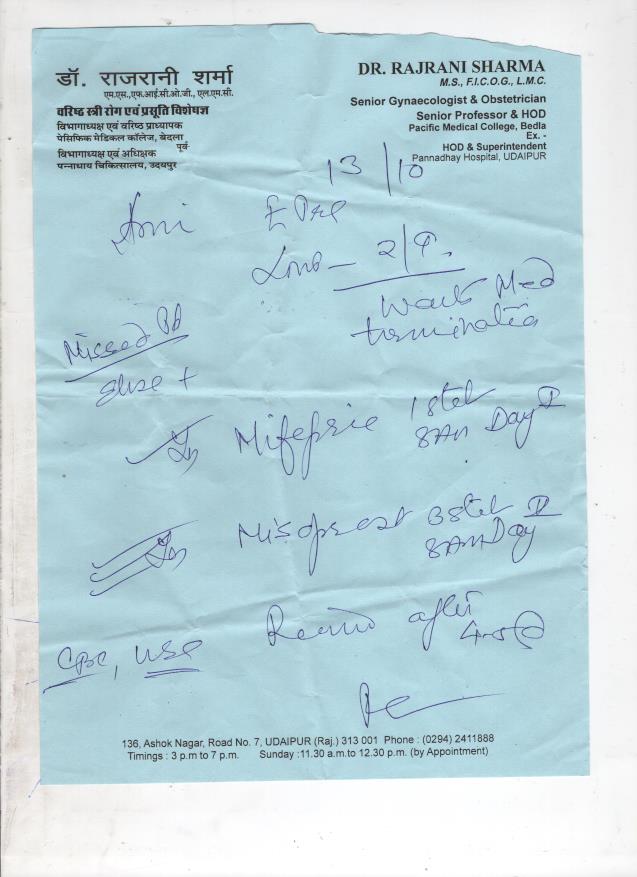 डॉ. राजरानी शर्मा
एम.एस.,एफ.आई.सी.ओ.जी., एल.एम.सी.
वरिष्ठ स्त्री रोग एवं प्रसूति विशेषज्ञ
विभागाध्यक्ष एवं वरिष्ठ प्राध्यापक
पेसिफिक मेडिकल कॉलेज, बेदला
पूर्व
विभागाध्यक्ष एवं अधिक्षक
पन्नाधाय चिकित्सालय, उदयपुर
DR. RAJRANI SHARMA
M.S., F.I.C.O.G., L.M.C.
Senior Gynaecologist & Obstetrician
Senior Professor & HOD
Pacific Medical College, Bedla
Ex. -
HOD & Superintendent
Pannadhay Hospital, UDAIPUR
13/10
2/9.
Want Med
termination
Missed
Mifeprie 1
8AM Day I
Misoprost 3
8AM Day II
after
CBC, USG
136, Ashok Nagar, Road No. 7, UDAIPUR (Raj.) 313 001 Phone : (0294) 2411888
Timings : 3 p.m to 7 p.m. Sunday :11.30 a.m.to 12.30 p.m. (by Appointment)